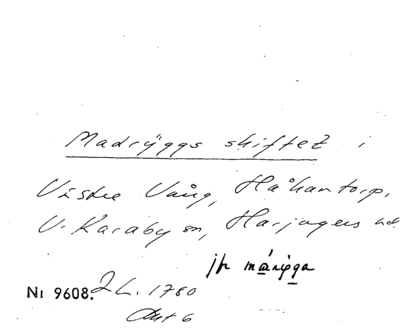 Madrÿggs skiftet i
Västre Vång, Håkantorp,
V. Karaby sn, Harjagers hd
jfr märÿgga
Nr 9608. L. 1780
Akt 6